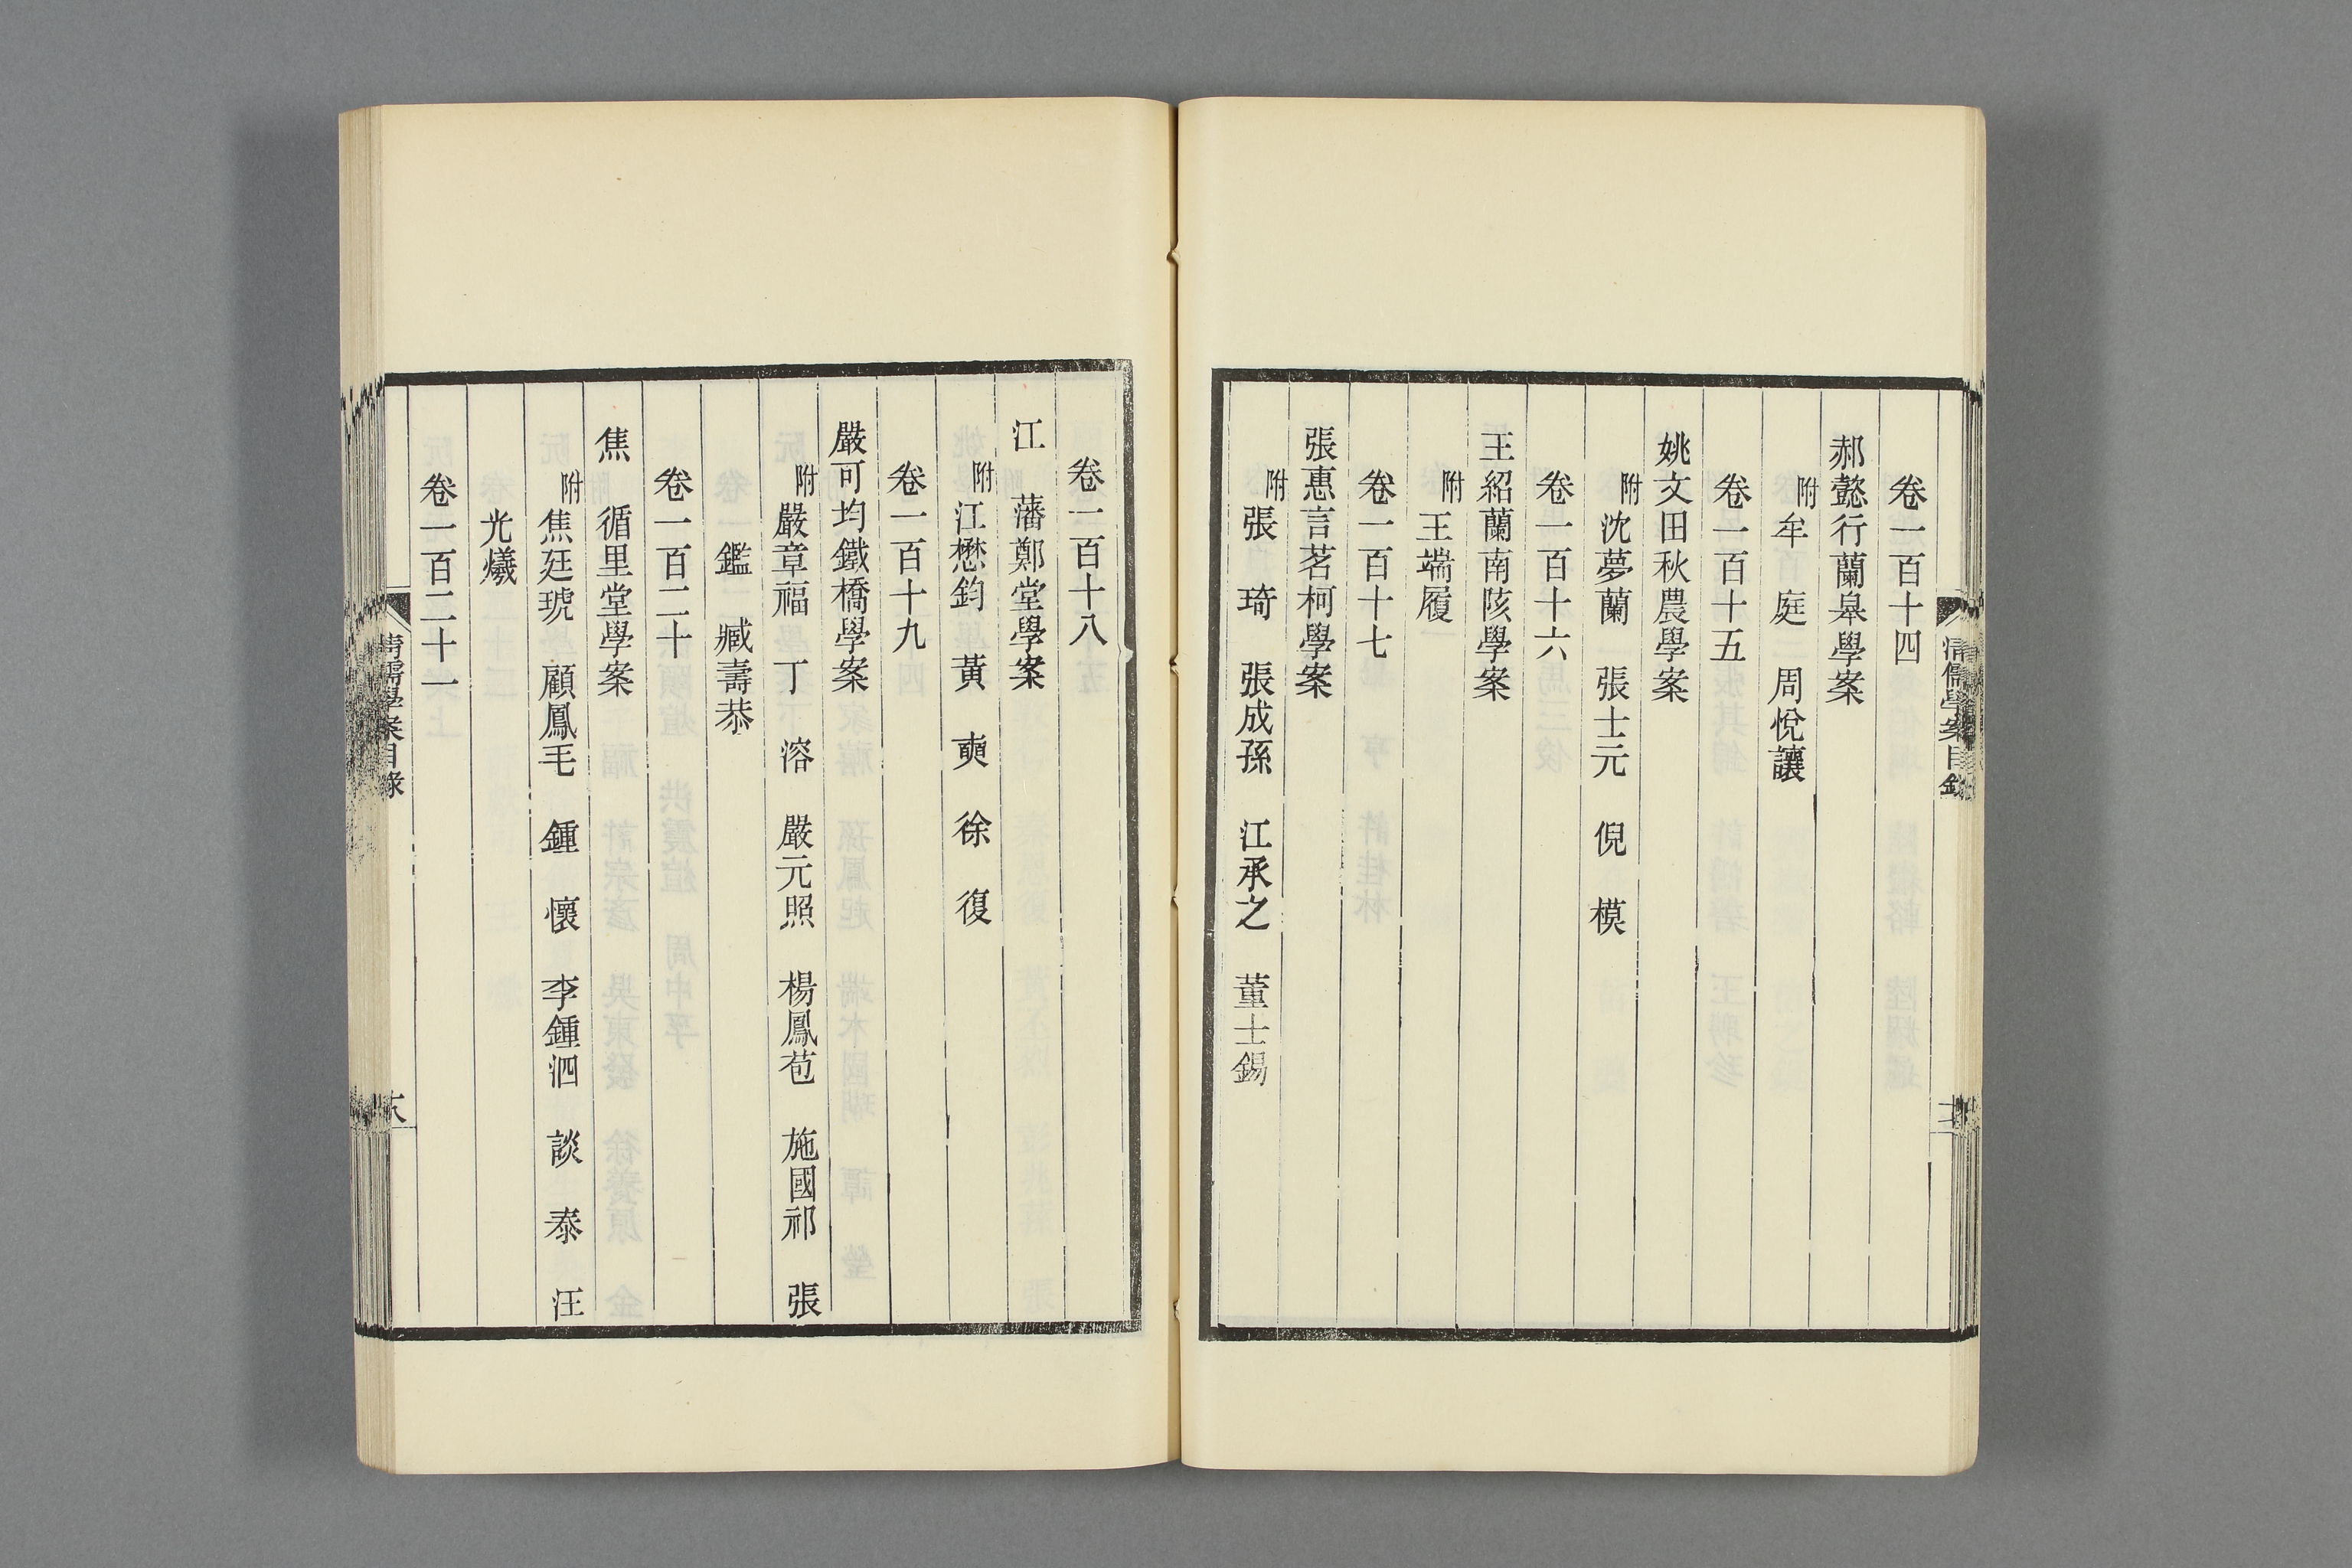 卷一百十四
郝懿行蘭皋學案
附牟　庭　周悅讓
卷一百十五
姚文田秋農學案
附沈夢蘭　張士元　倪　模
卷一百十六
王紹蘭南陔學案
附王端履
卷一百十七
張惠言茗柯學案
附張　琦　張成孫　江承之　董士錫
卷一百十八
江　藩鄭堂學案
附江懋鈞　黃　奭　徐　復
卷一百十九
嚴可均鐵橋學案
附嚴章福　丁　溶　嚴元照　楊鳳苞　施國祁　張
鑑　臧壽恭
卷一百二十
焦　循里堂學案
附焦廷琥　顧鳳毛　鍾　懷　李鍾泗　談　泰　汪
光爔
卷一百二十一
清儒學案目錄